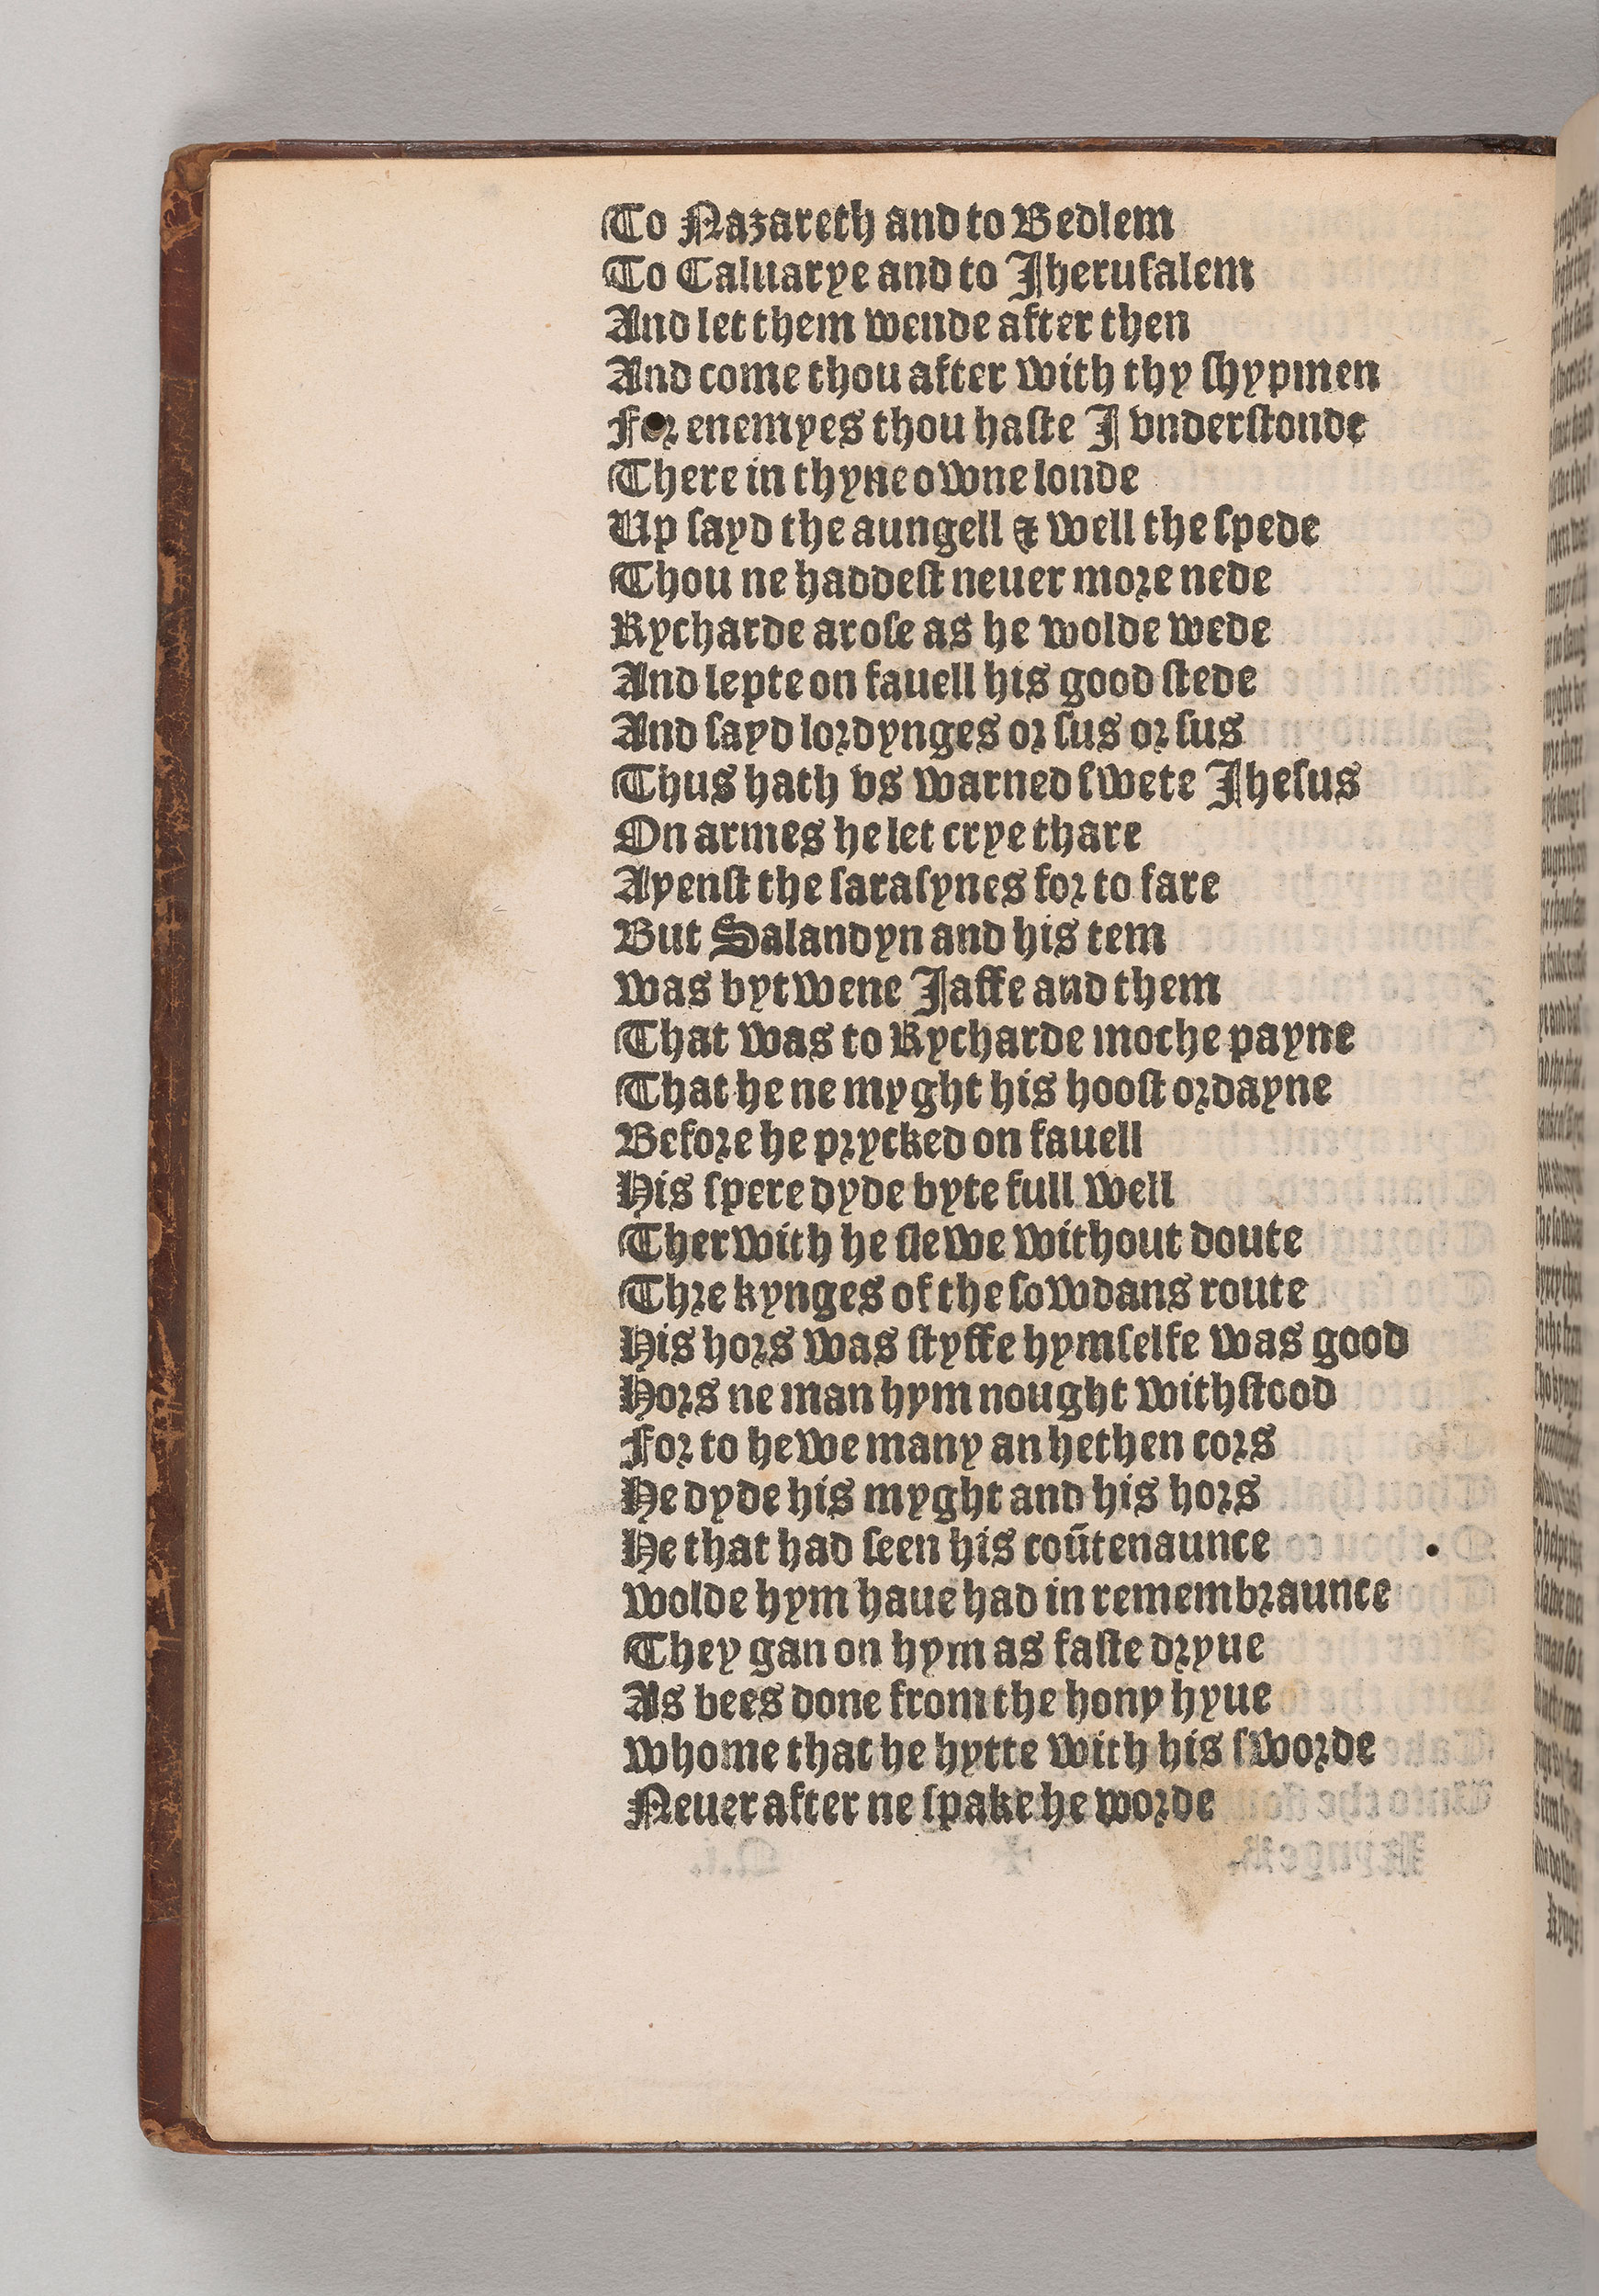 To Nazareth and to Bedlem
To Caluarye and to Jherusalem
And let them wende after then
And come thou after with thy shypmen
For enemyes thou haste J vnderstonde
There in thyne owne londe
Up sayd the aungell & well the spede
Thou ne haddest neuer more nede
Rycharde arose as he wolde wede
And lepte on fauell his good stede
And sayd lordynges or sus or sus
Thus hath vs warned swete Jhesus
On armes he let crye thare
Ayenst the sarasynes for to fare
But Salandyn and his tem
was bytwene Jaffe and them
That was to Rycharde moche payne
That he ne myght his hoost ordayne
Before he prycked on fauell
His spere dyde byte full well
Therwith he slewe without doute
Thre kynges of the sowdans route
His hors was styffe hymselfe was good
Hors ne man hym nought withstood
For to hewe many an hethen cors
He dyde his myght and his hors
He that had seen his coūtenaunce
wolde hym haue had in remembraunce
They gan on hym as faste dryue
As bees done from the hony hyue
whome that he hytte with his sworde
Neuer after ne spake he worde